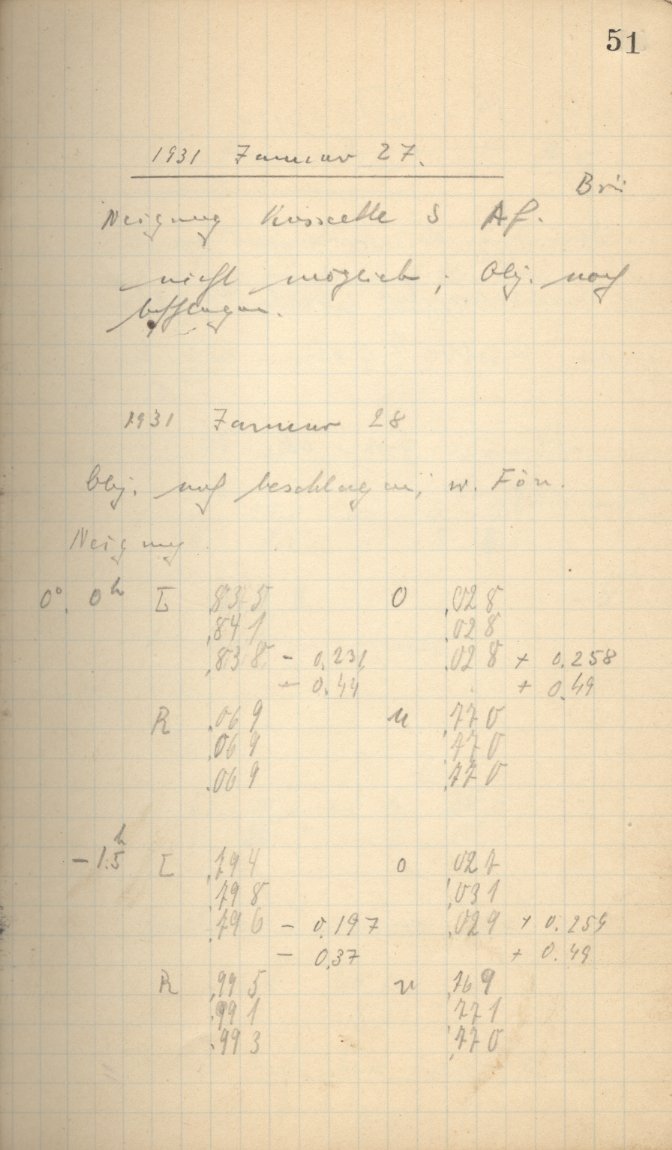 51
1931 Januar 27.
Brü
Neigung Kassette S Af.
nicht möglich; Obj. noch
beschlagen.
1931 Januar 28
Obj. noch beschlagen; w. Fön.
Neigung
0°. 0h L .835 O .028
.841 .028
.838 - 0.231 .028 + 0.258
- 0.44 + 0.49
R .069 u .770
.069 .770
.069 .770
-1.5h L .794 o .027
.798 .031
.796 - 0.197 .029 + 0.259
- 0.37 + 0.49
R .995 u .769
.991 .771
.993 .770